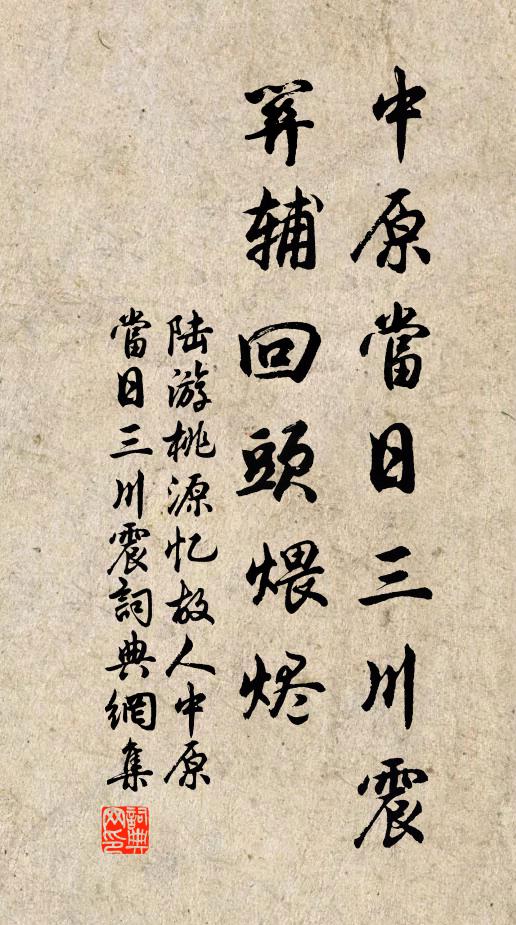 中原當日三川震
关辅回頭煨烬
陆游桃源忆故人中原
當日三川震詞典網集
詞典
网印